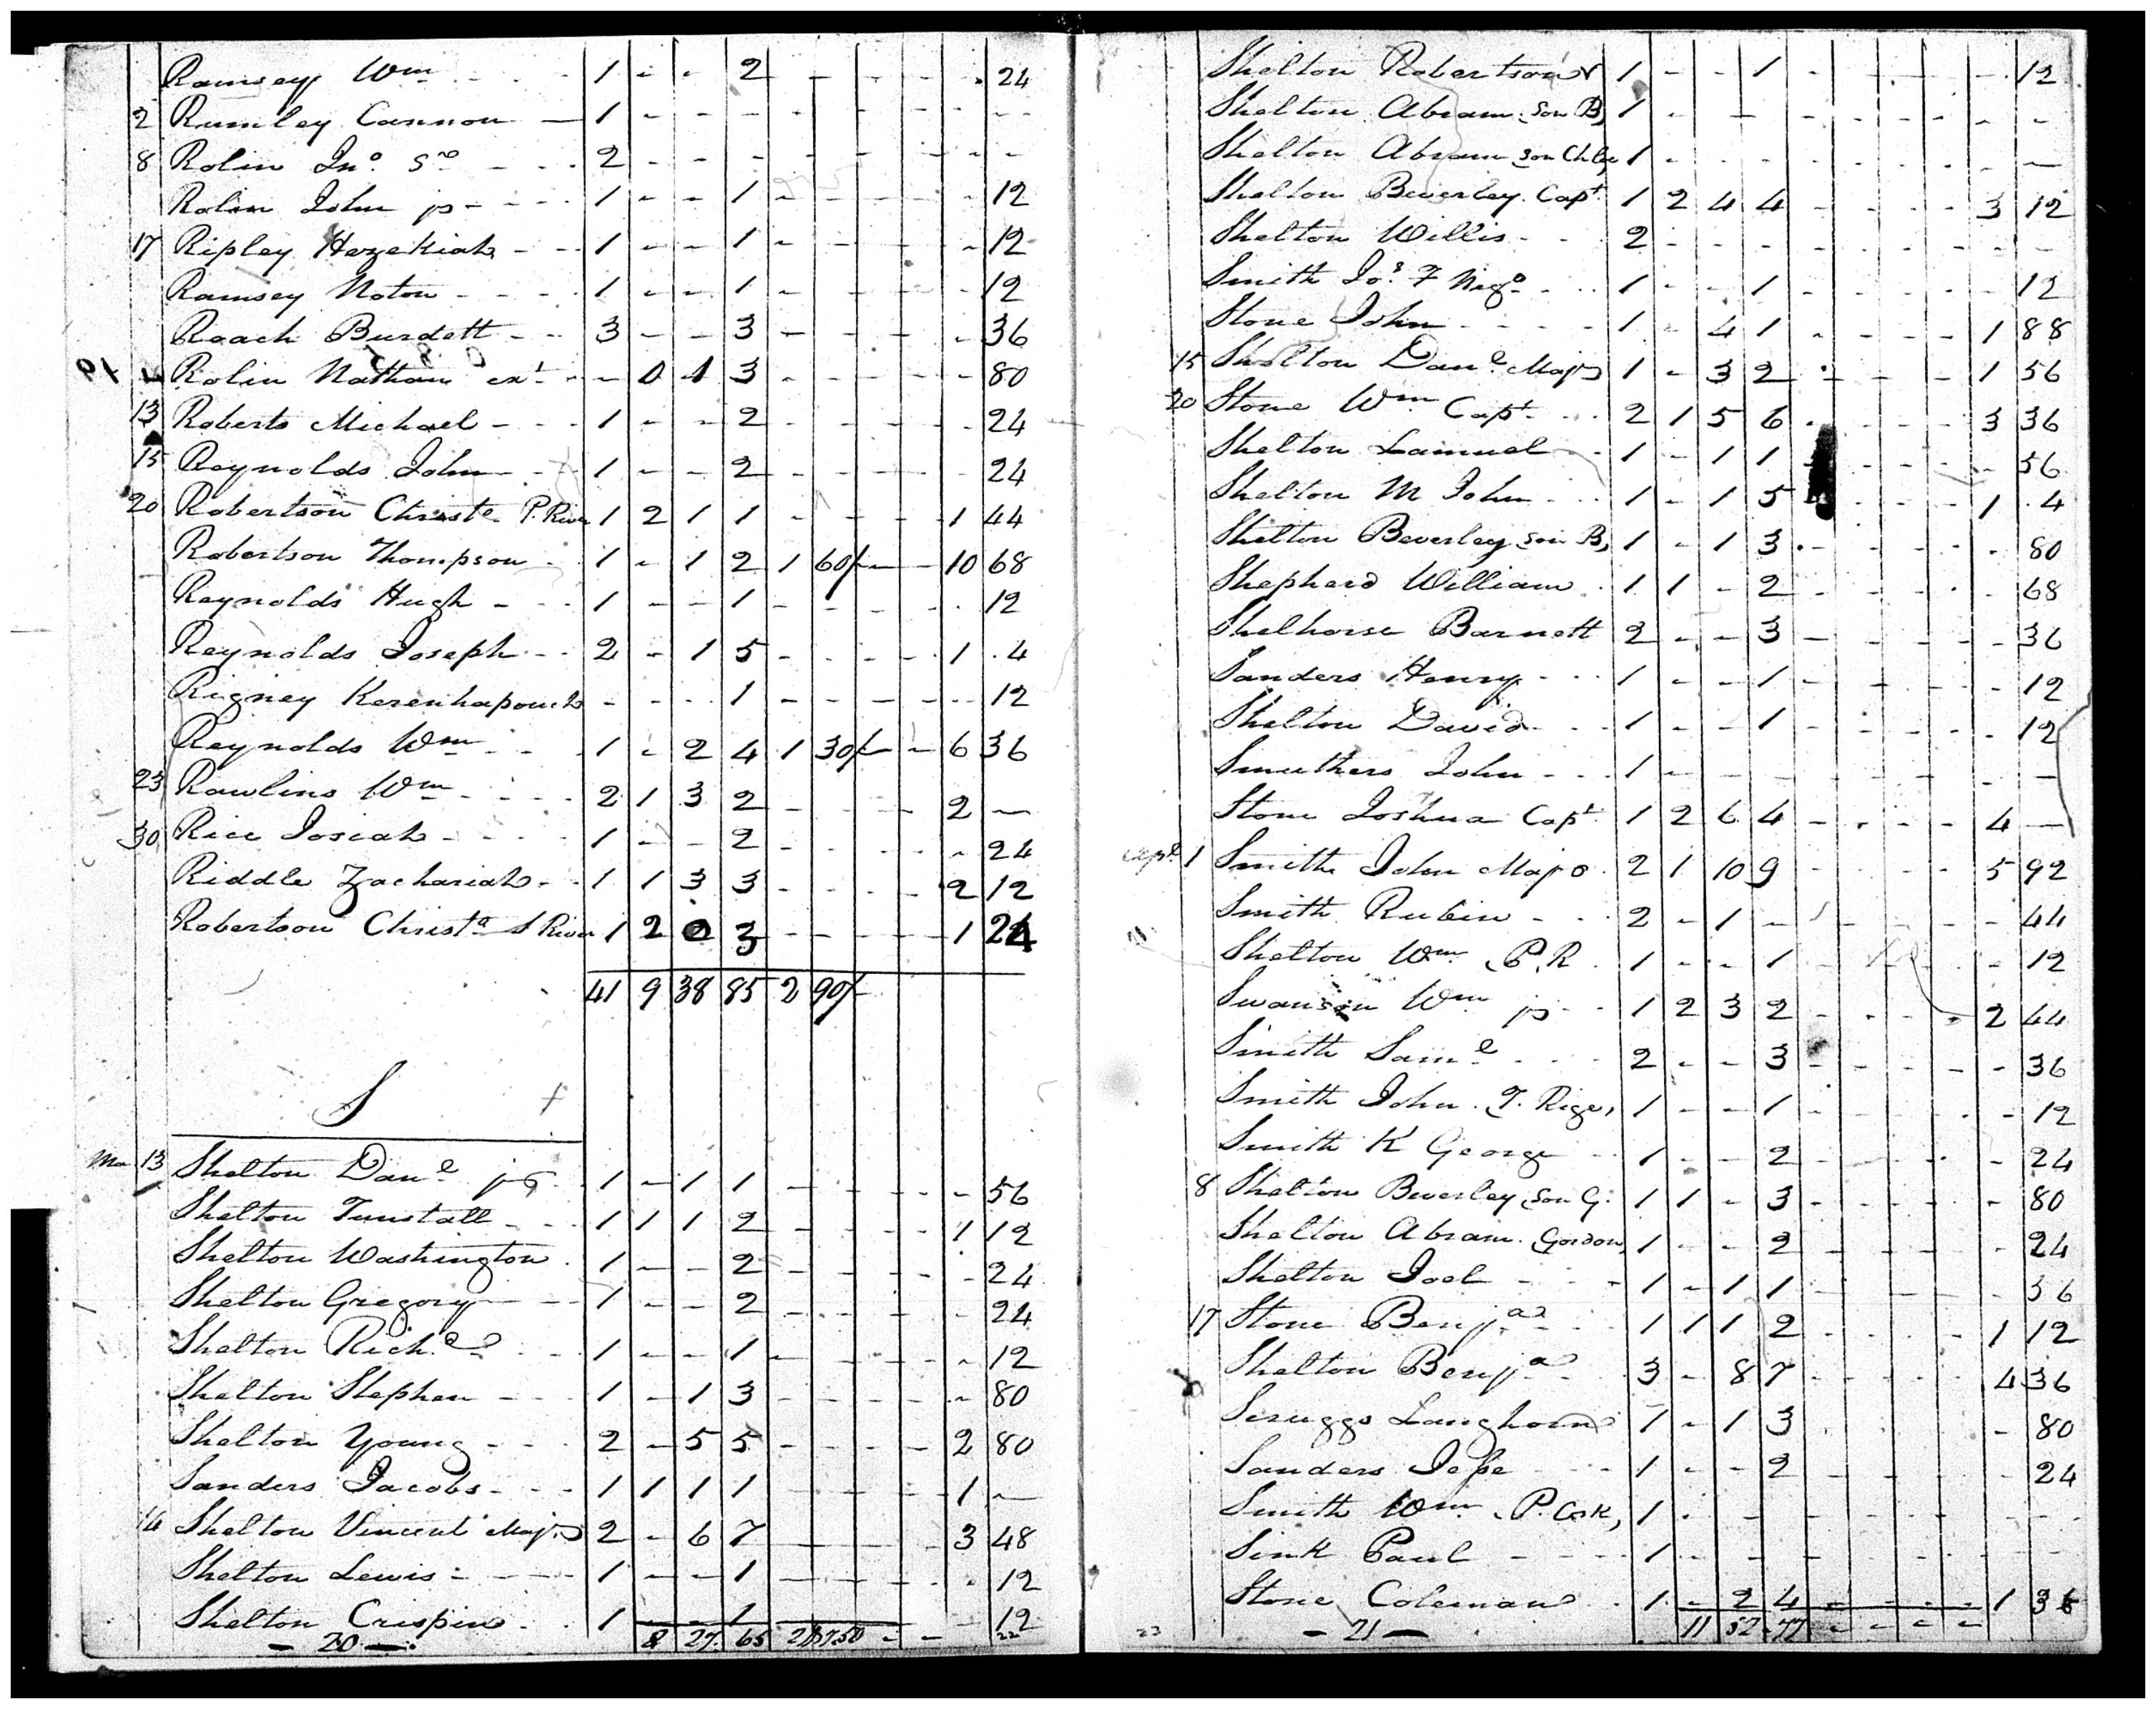 Ramsey Wm - - - 1 - - 2 - - - - - 24
2 Rumley Cannon - 1 - - - - - - - - -
8 Rolin Jno. Sr - - - 2 - - - - - - - - -
Rolin John jr - - - 1 - - 1 - - - - - 12
17 Ripley Hezekiah - - 1 - - 1 - - - - - 12
Ramsey Noton - - - 1 - - 1 - - - - - 12
Roach Burdett - - 3 - - 3 - - - - - 36
Rolin Nathan - - 1 3 - - - - - 80
13 Roberts Michael - - - 1 - - 2 - - - - - 24
15 Reynolds John - - 1 - - 2 - - - - - 24
20 Robertson Christr. P. River 1 2 1 1 - - - - 1 44
Robertson Thompson - 1 - 1 2 1 60/ - - 10 68
Reynolds Hugh - - - 1 - - 1 - - - - - 12
Reynolds Joseph - - 2 - 1 5 - - - - 1 . 4
Rigney Kerenhapouch - - - 1 - - - - - 12
Reynolds Wm - - - 1 - 2 4 1 30/ - - 6 36
23 Rawlins Wm - - - - 2 1 3 2 - - - - 2 -
30 Rice Josiah - - - - 1 - - 2 - - - - - 24
Riddle Zachariah - - 1 1 3 3 - - - - 2 12
Robertson Christr. S River 1 2 0 3 - - - - 1 24
41 9 38 85 2 90/
S
Mar 13 Shelton Danl. jr - 1 - 1 1 - - - - - 56
Shelton Tunstall - - 1 1 1 2 - - - - 1 12
Shelton Washington - 1 - - 2 - - - - - 24
Shelton Gregory - - 1 - - 2 - - - - - 24
Shelton Richd. - - - 1 - - 1 - - - - - 12
Shelton Stephen - - 1 - 1 3 - - - - - 80
Shelton Young - - - 2 - 5 5 - - - - 2 80
Sanders Jacobs - - - 1 1 1 1 - - - - 1 -
14 Shelton Vincent Majr. 2 - 6 7 - - - - 3 48
Shelton Lewis - - - - 1 - - 1 - - - - - 12
Shelton Crispin - - 1 - - 1 - - - - - 12
- 20 - 8 27 65 - - 22
Shelton Robertson 1 - - 1 - - - - - 12
Shelton Abram son B, 1 - - - - - - - - -
Shelton Abram son Chloe 1 - - - - - - - - -
Shelton Beverley Capt. 1 2 4 4 - - - - 3 12
Shelton Willis - - - 2 - - - - - - - - -
Smith Jos. F - - 1 - - 1 - - - - - 12
Stone John - - - - 1 - 4 1 - - - - 1 88
15 Shelton Danl. Majr 1 - 3 2 - - - - 1 56
20 Stone Wm Capt. - - - 2 1 5 6 - - - - 3 36
Shelton Lamuel - 1 - 1 1 - - - - 56
Shelton M John - - - 1 - 1 5 - - - 1 . 4
Shelton Beverley son B, 1 - 1 3 - - - - - 80
Shepherd William - 1 1 - 2 - - - - - 68
Shelhorse Barnett 2 - - 3 - - - - - 36
Sanders Henry - - - 1 - - 1 - - - - - 12
Shelton David - - - 1 - - 1 - - - - - 12
Smuthers John - - - 1 - - - - - - - - -
Stone Joshua Capt. 1 2 6 4 - - - - 4 -
Apl. 1 Smith John Majr. 2 1 10 9 - - - - 5 92
Smith Rubin - - - 2 - 1 - - - - - - 44
Shelton Wm. P.R. 1 - - 1 - - - - - 12
Swanson Wm jr - - 1 2 3 2 - - - - 2 44
Smith Saml. - - - 2 - - 3 - - - - - 36
Smith John. T. Rige, 1 - - 1 - - - - - 12
Smith K George - 1 - - 2 - - - - - 24
8 Shelton Beverley son G. 1 1 - 3 - - - - - 80
Shelton Abram. Gordon, 1 - - 2 - - - - - 24
Shelton Joel - - - 1 - 1 1 - - - - - 56
17 Stone Benja. - - - 1 1 1 2 - - - - 1 12
Shelton Benja. - - 3 - 8 7 - - - - 4 36
Scruggs Langhorn 1 - 1 3 - - - - - 80
Sanders Jesse - - - 1 - - 2 - - - - - 24
Smith Wm. P. Cok, 1 - - - - - - - - -
Sink Paul - - - - 1 - - - - - - - - -
Stone Coleman - 1 - 2 4 - - - - 1 36
23 - 21 - 11 52 77 - - - -